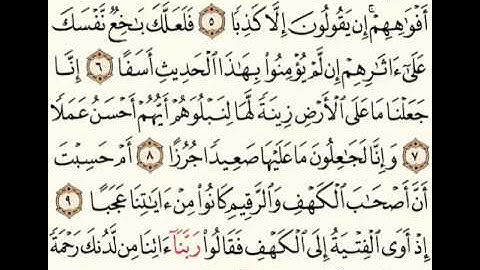 أَفْوَٰهِهِمْ ۚ إِن يَقُولُونَ إِلَّا كَذِبًا ۝٥ فَلَعَلَّكَ بَٰخِعٌ نَّفْسَكَ
عَلَىٰٓ ءَاثَٰرِهِمْ إِن لَّمْ يُؤْمِنُوا۟ بِهَٰذَا ٱلْحَدِيثِ أَسَفًا ۝٦ إِنَّا
جَعَلْنَا مَا عَلَى ٱلْأَرْضِ زِينَةً لَّهَا لِنَبْلُوَهُمْ أَيُّهُمْ أَحْسَنُ عَمَلًا
۝٧ وَإِنَّا لَجَٰعِلُونَ مَا عَلَيْهَا صَعِيدًا جُرُزًا ۝٨ أَمْ حَسِبْتَ
أَنَّ أَصْحَٰبَ ٱلْكَهْفِ وَٱلرَّقِيمِ كَانُوا۟ مِنْ ءَايَٰتِنَا عَجَبًا ۝٩
إِذْ أَوَى ٱلْفِتْيَةُ إِلَى ٱلْكَهْفِ فَقَالُوا۟ رَبَّنَآ ءَاتِنَا مِن لَّدُنكَ رَحْمَةً